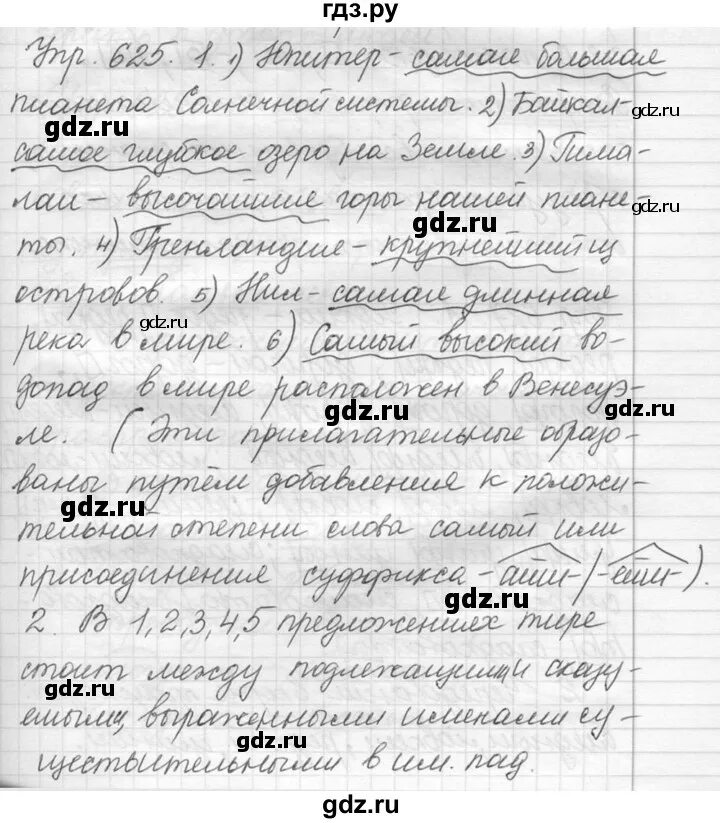 гдз.ру
Упр. 625. 1. 1) Юпитер - самая большая
планета Солнечной системы. 2) Байкал-
gdz.ru gdz.ru
самое глубокое озеро на Земле. 3) Гима-
gdz.ru
лаи - высочайшие горы нашей плане-
gdz.ru
ты. 4) Гренландия - крупнейший из
островов. 5) Нил - самая длинная
gdz.ru
река в мире. 6) Самый высокий во-
gdz.ru
допад в мире расположен в Венесуэ-
gdz.ru gdz.ru
ле. (Эти прилагательные образо-
ваны путём добавления к положи-
gdz.ru gdz.ru
тельной степени слова самый или
присоединения суффикса -айш-/-ейш-).
gdz.ru
2. В 1,2,3,4,5 предложениях тире
стоит между подлежащим и сказу-
gdz.ru gdz.ru
емым, выраженными именами су-
gdz.ru
ществительными в им. пад.
gdz.ru